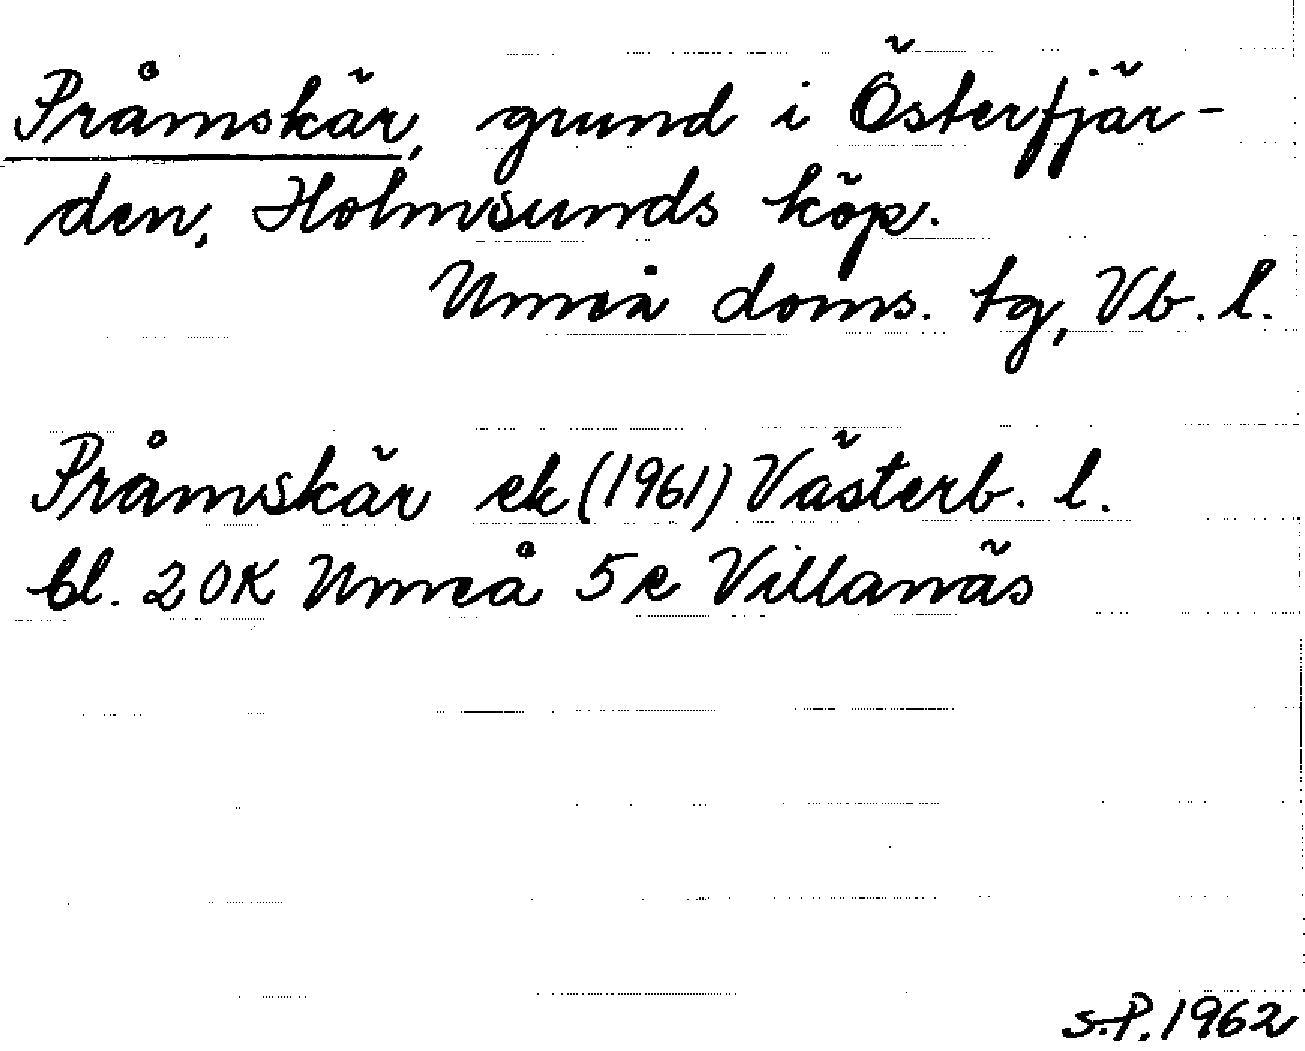 Pråmskär, grund i Österfjär-
den, Holmsunds köp.
Umeå doms. tg, Vb. l.
Pråmskär ek (1961) Västerb. l.
bl. 20K Umeå 5e Villanäs
S.P. 1962